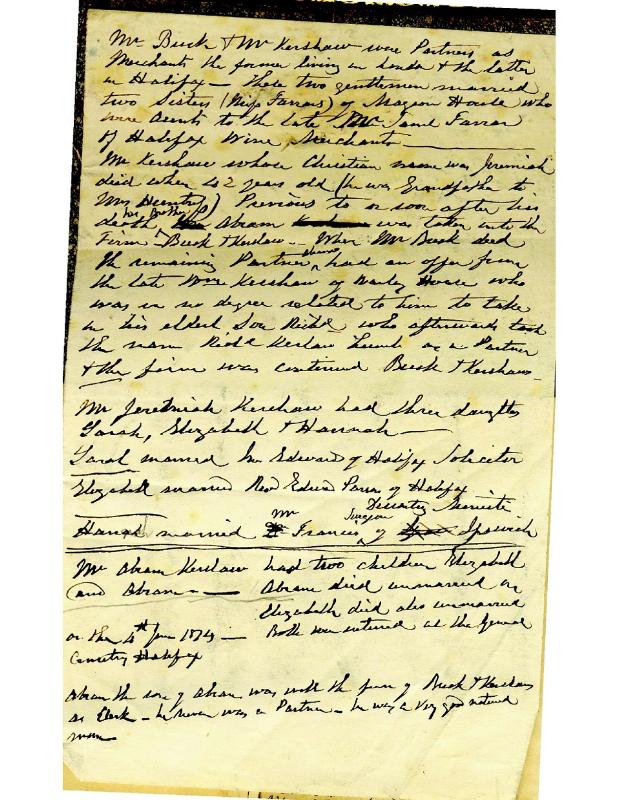 Mr Busk & Mr Kershaw were Partners as
Merchants the former living in Leeds & the latter
in Halifax — These two gentlemen married
two Sisters (Miss Farrars) of House who
were to the late Farrar
of Halifax Wine Merchants —
Mr Kershaw whose Christian name was Jeremiah
died when 42 years old (he was Grandfather to
Mrs ) Previous to or soon after his
death his brother Abram was taken into the
Firm — Busk & Kershaw — When Mr Busk died
the remaining Partner had an offer from
the late Wm Kershaw of Warley House who
was in no degree related to him to take
in his eldest Son Richd who afterwards took
the name Richd Kershaw as a Partner
& the firm was continued Busk & Kershaw —
Mr Jeremiah Kershaw had three daughters
Sarah, Elizabeth & Hannah —
Sarah married Mr Edwards of Halifax Solicitor
Elizabeth married Revd of Halifax
Dissenting Minister
Hannah married Mr Francis Surgeon of Ipswich
Mr Abram Kershaw had two children Elizabeth
and Abram — Abram died unmarried
Elizabeth died also unmarried
on the 4th June 1874 — Both were interred at the General
Cemetry Halifax
Abram the son of Abram was with the firm of Busk & Kershaw
as Clerk — he never was a Partner — he was a very good natured
man —